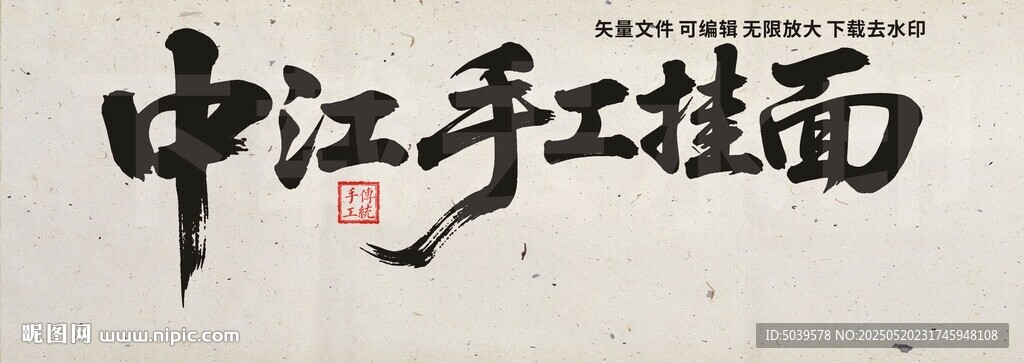 矢量文件 可编辑 无限放大 下载去水印
中江手工挂面
傳統
手工
昵图网 www.nipic.com
ID:5039578 NO:20250520231745948108